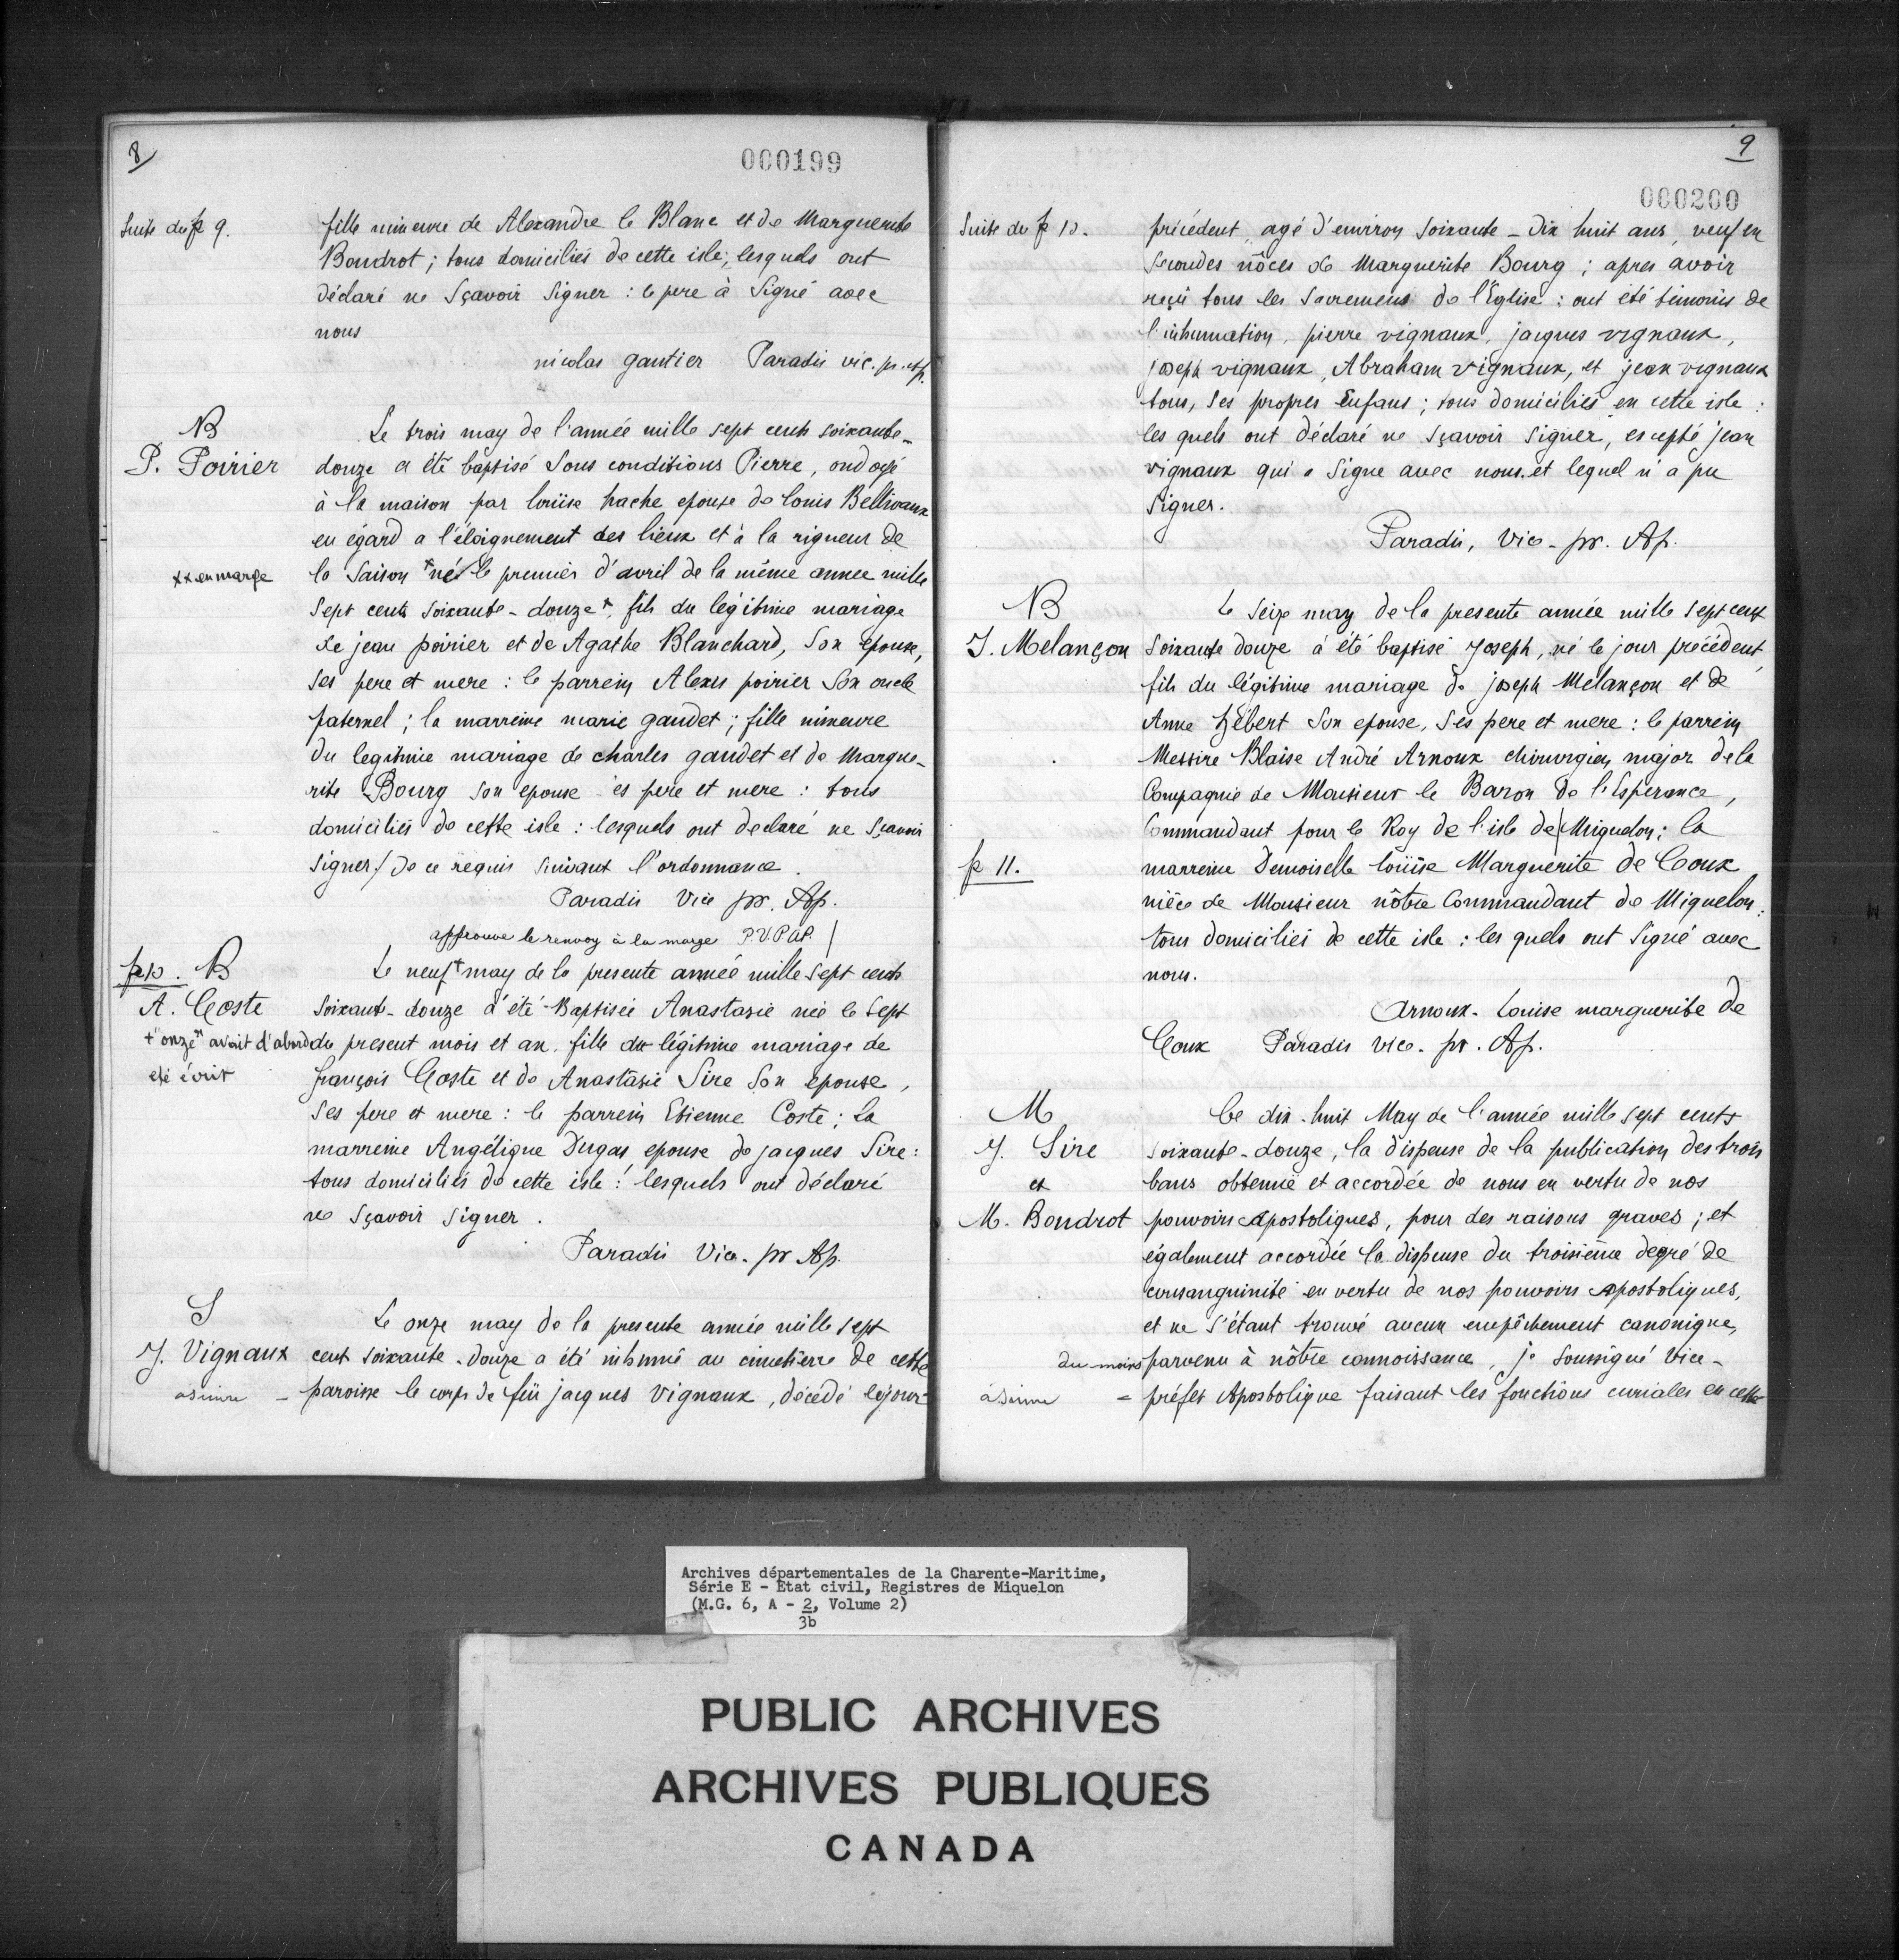 8
000199
Suite du p 9.
fille mineure de Alexandre le Blanc et de Marguerite
Boudrot ; tous domiciliés de cette isle ; lesquels ont
déclaré ne Sçavoir Signer : le pere à Signé avec
nous
nicolas gautier Paradis vic. pr. Ap.
B
P. Poirier
Le trois may de l'année mille sept cents soixante-
douze a été baptisé Sous conditions Pierre, ondoyé
à la maison par loüise hache epouse de louis Bellivaux
eu égard a l'éloignement des lieux et à la rigueur de
xx en marge
la Saison x né le premier d'avril de la même annee mille
Sept cents soixante-douze x, fils du légitime mariage
de jean poirier et de Agathe Blanchard, Son epouse,
Ses pere et mere : le parrein Alexis poirier Son oncle
paternel ; la marreine marie gaudet ; fille mineure
du legitime mariage de charles gaudet et de Margue-
rite Bourg Son epouse es pere et mere : tous
domiciliés de cette isle : lesquels ont declaré ne Sçavoir
signer / de ce requis Suivant l'ordonnance.
Paradis Vice pr. Ap.
approuve le renvoy à la marge P.V.P.AP. /
p 10. B
A. Coste
+ "onze" avait d'abord
eté écrit
Le neuf + may de la presente année mille Sept cents
Soixante-douze a été Baptisée Anastasie née le Sept
du present mois et an, fille du légitime mariage de
françois Coste et de Anastasie Sire Son epouse,
Ses pere et mere : le parrein Etienne Coste ; La
marreine Angélique Dugas epouse de jacques Sire :
tous domiciliés de cette isle : lesquels ont déclaré
ne Sçavoir Signer.
Paradis Vice-pr Ap.
S
J. Vignaux
Le onze may de la presente année mille sept
cent soixante-douze a été inhumé au cimetierre de cette
à suivre = paroisse le corps de feü jacques Vignaux, décédé le jour
9
000200
Suite du p 10.
précédent, agé d'environ Soixante-Dix huit ans, veuf en
Secondes nôces de Marguerite Bourg ; apres avoir
reçü tous les Sacremens de l'Église : ont été témoins de
l'inhumation, pierre vignaux, jacques vignaux,
joseph vignaux, Abraham vignaux, et jean vignaux
tous, Ses propres Enfans ; tous domiciliés en cette isle :
les quels ont déclaré ne Sçavoir Signer, escepté jean
vignaux qui a Signe avec nous. et lequel n'a pu
Signer.
Paradis, Vice-pr. Ap.
B
J. Melançon
Le Seize may de la presente année mille Sept cent
Soixante douze à été baptisé Joseph, né le jour précédent,
fils du légitime mariage de joseph Mélançon et de
Anne hébert Son epouse, Ses pere et mere : le parrein
Messire Blaise André Arnoux chirurgien major de la
Compagnie de Monsieur le Baron de l'Esperance,
Commandant pour le Roy de l'isle de / Miquelon ; la
p 11.
marreine Demoiselle loüise Marguerite de Coux
nièce de Monsieur nôtre Commandant de Miquelon :
tous domiciliés de cette isle : les quels ont Signé avec
nous.
Arnoux. Louise marguerite de
Coux Paradis vice-pr. Ap.
M
J. Sire
et
M. Boudrot
Le dix-huit May de l'année mille sept cents
soixante-douze, la dispense de la publication des trois
bans obtenuë et accordée de nous en vertu de nos
pouvoirs apostoliques, pour des raisons graves ; et
également accordée la dispense du troisième degré de
consanguinité en vertu de nos pouvoirs apostoliques,
et ne S'étant trouvé aucun empêchement canonique,
du moins parvenu à nôtre connoissance, je Soussigné Vice-
à Suivre = préfet Apostolique faisant les fonctions curiales en cette
Archives départementales de la Charente-Maritime,
Série E - État civil, Registres de Miquelon
(M.G. 6, A - 2, Volume 2)
3b
PUBLIC ARCHIVES
ARCHIVES PUBLIQUES
CANADA